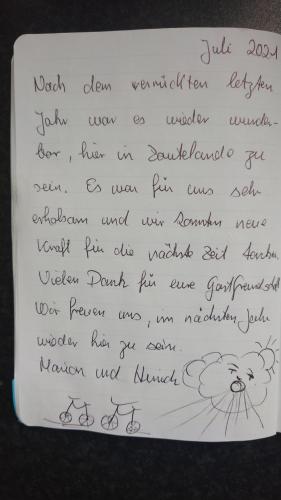 Juli 2021
Nach dem verrückten letzten
Jahr war es wieder wunder-
bar, hier in Zoutelande zu
sein. Es war für uns sehr
erholsam und wir konnten neue
Kraft für die nächste Zeit tanken.
Vielen Dank für eure Gastfreundschaft
Wir freuen uns, im nächsten Jahr
wieder hier zu sein.
Marion und